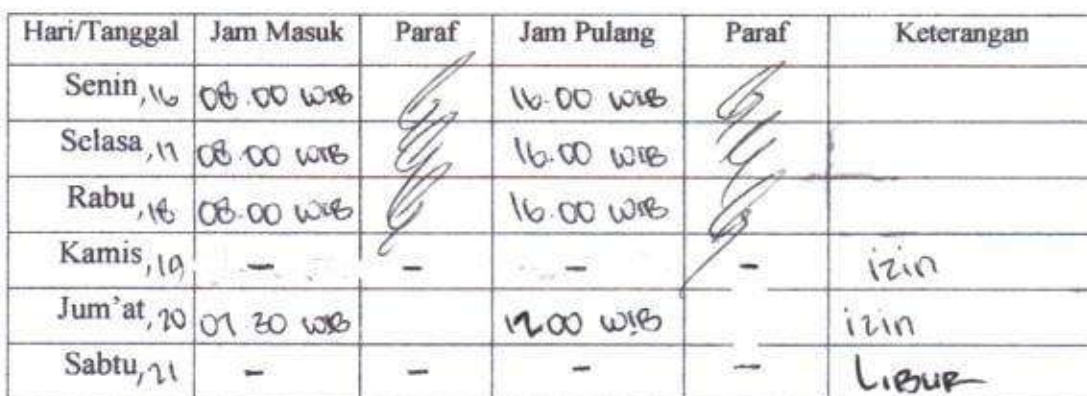 Hari/Tanggal Jam Masuk Paraf Jam Pulang Paraf Keterangan
Senin, 16 08.00 WIB 16.00 WIB
Selasa, 17 08.00 WIB 16.00 WIB
Rabu, 18 08.00 WIB 16.00 WIB
Kamis, 19 - - - - izin
Jum'at, 20 07 30 WIB 12.00 WIB izin
Sabtu, 21 - - - - LIBUR